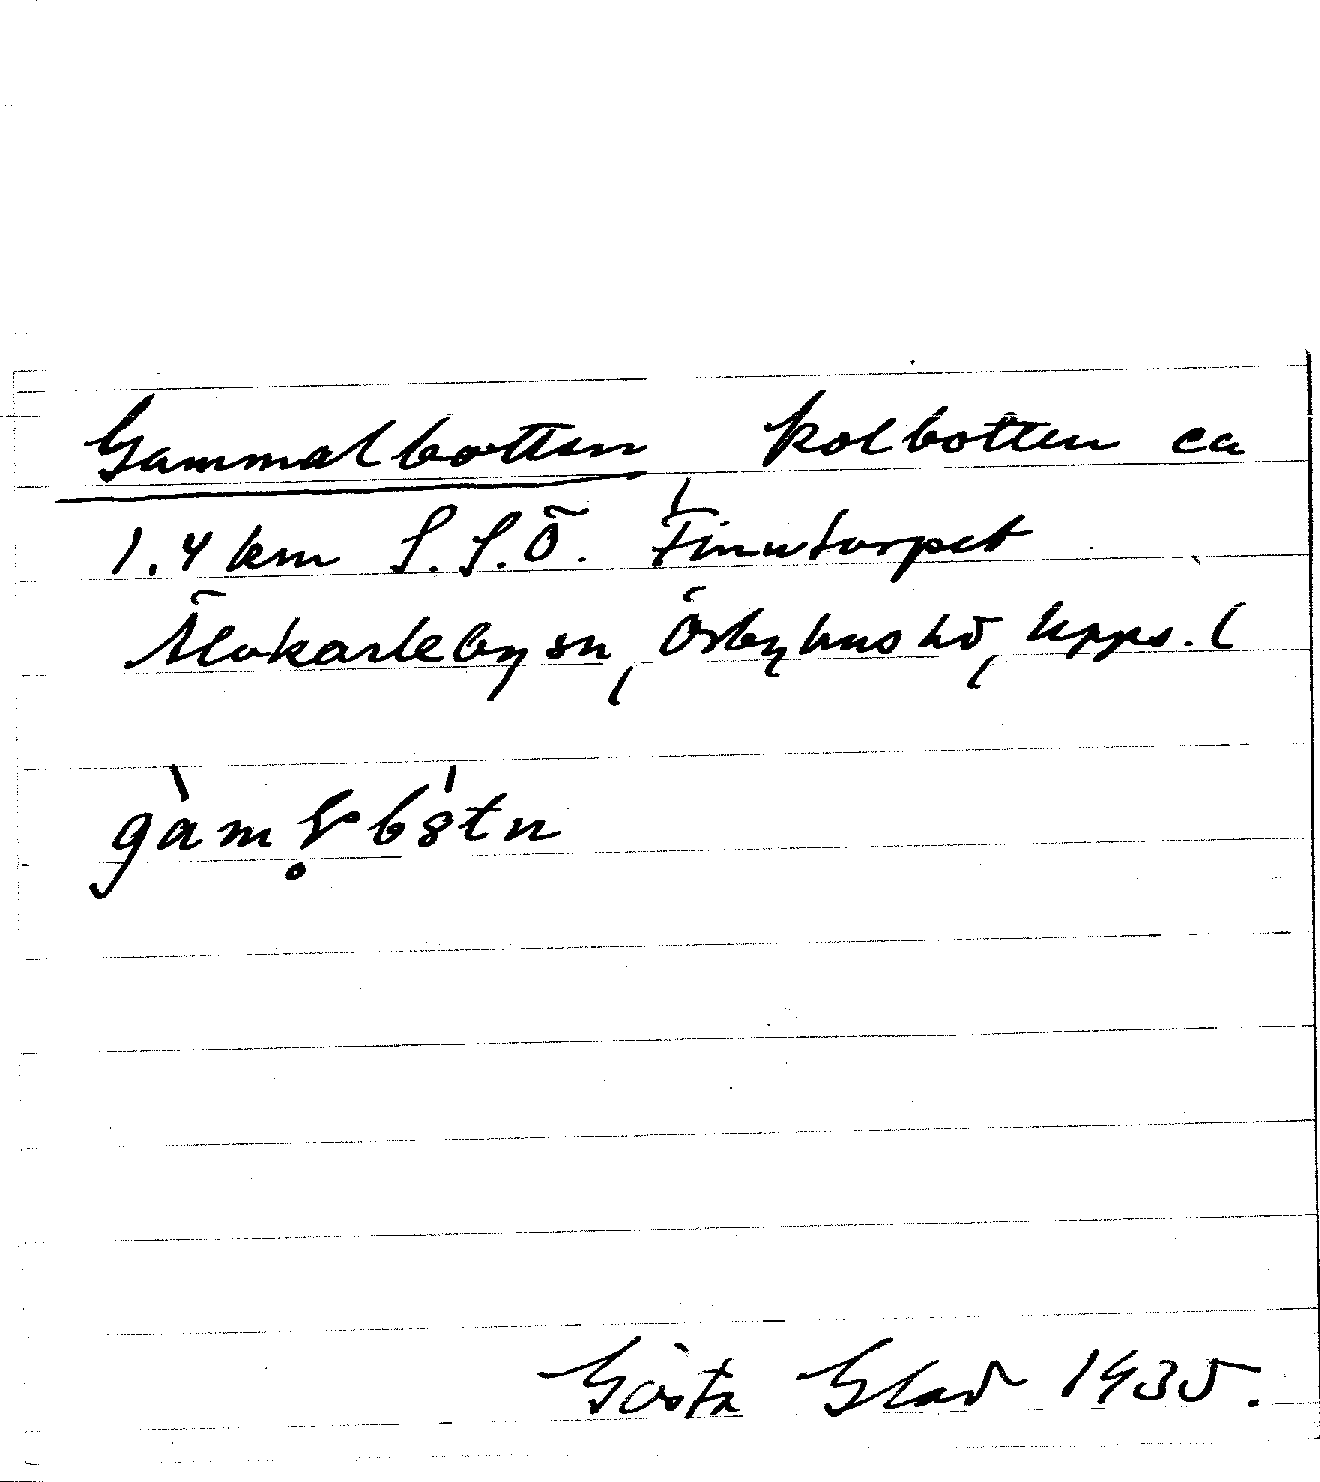 Gammalbotten kolbotten ca
1.4 km S.S.Ö. Finntorpet
Älvkarleby sn, Örbyhus hd, Upps. l
gàml̥bótn
Gösta Glad 1935.